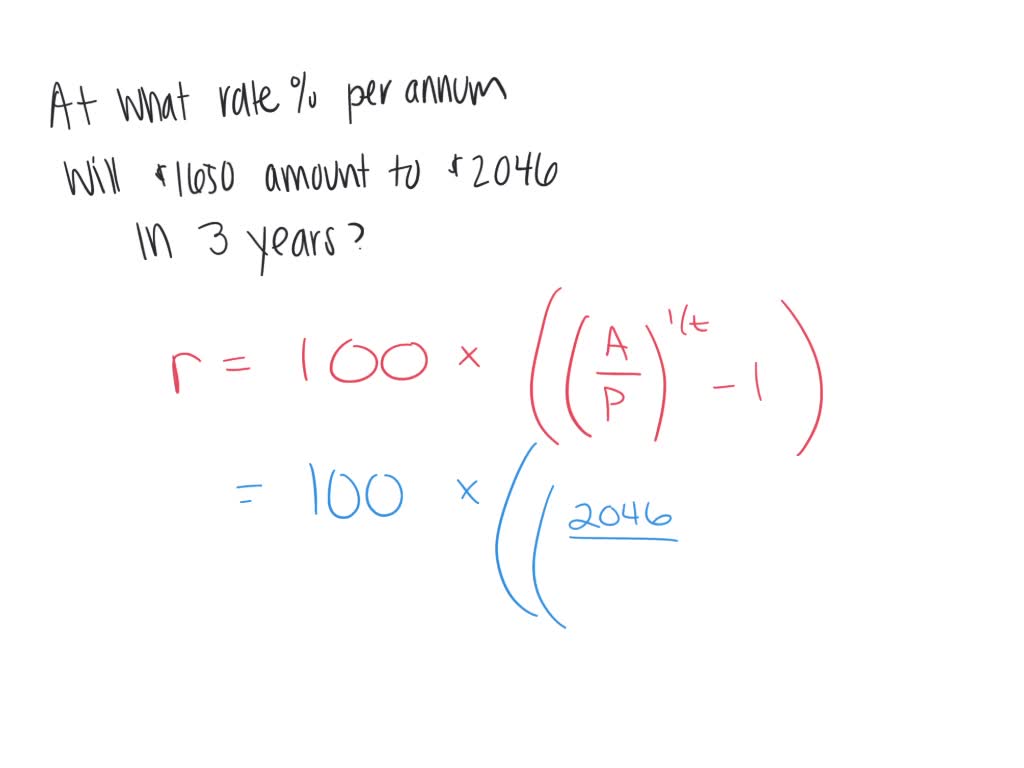 At what rate % per annum
Will $1650 amount to $2046
In 3 years?
r = 100 × ((A/P)^1/t - 1)
= 100 × ((2046